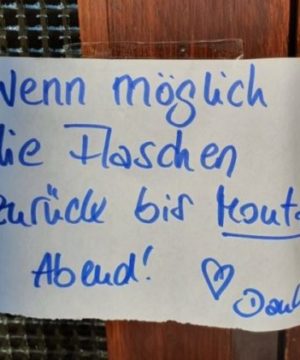 Wenn möglich
die Flaschen
zurück bis Monta
Abend! ♡ Dank